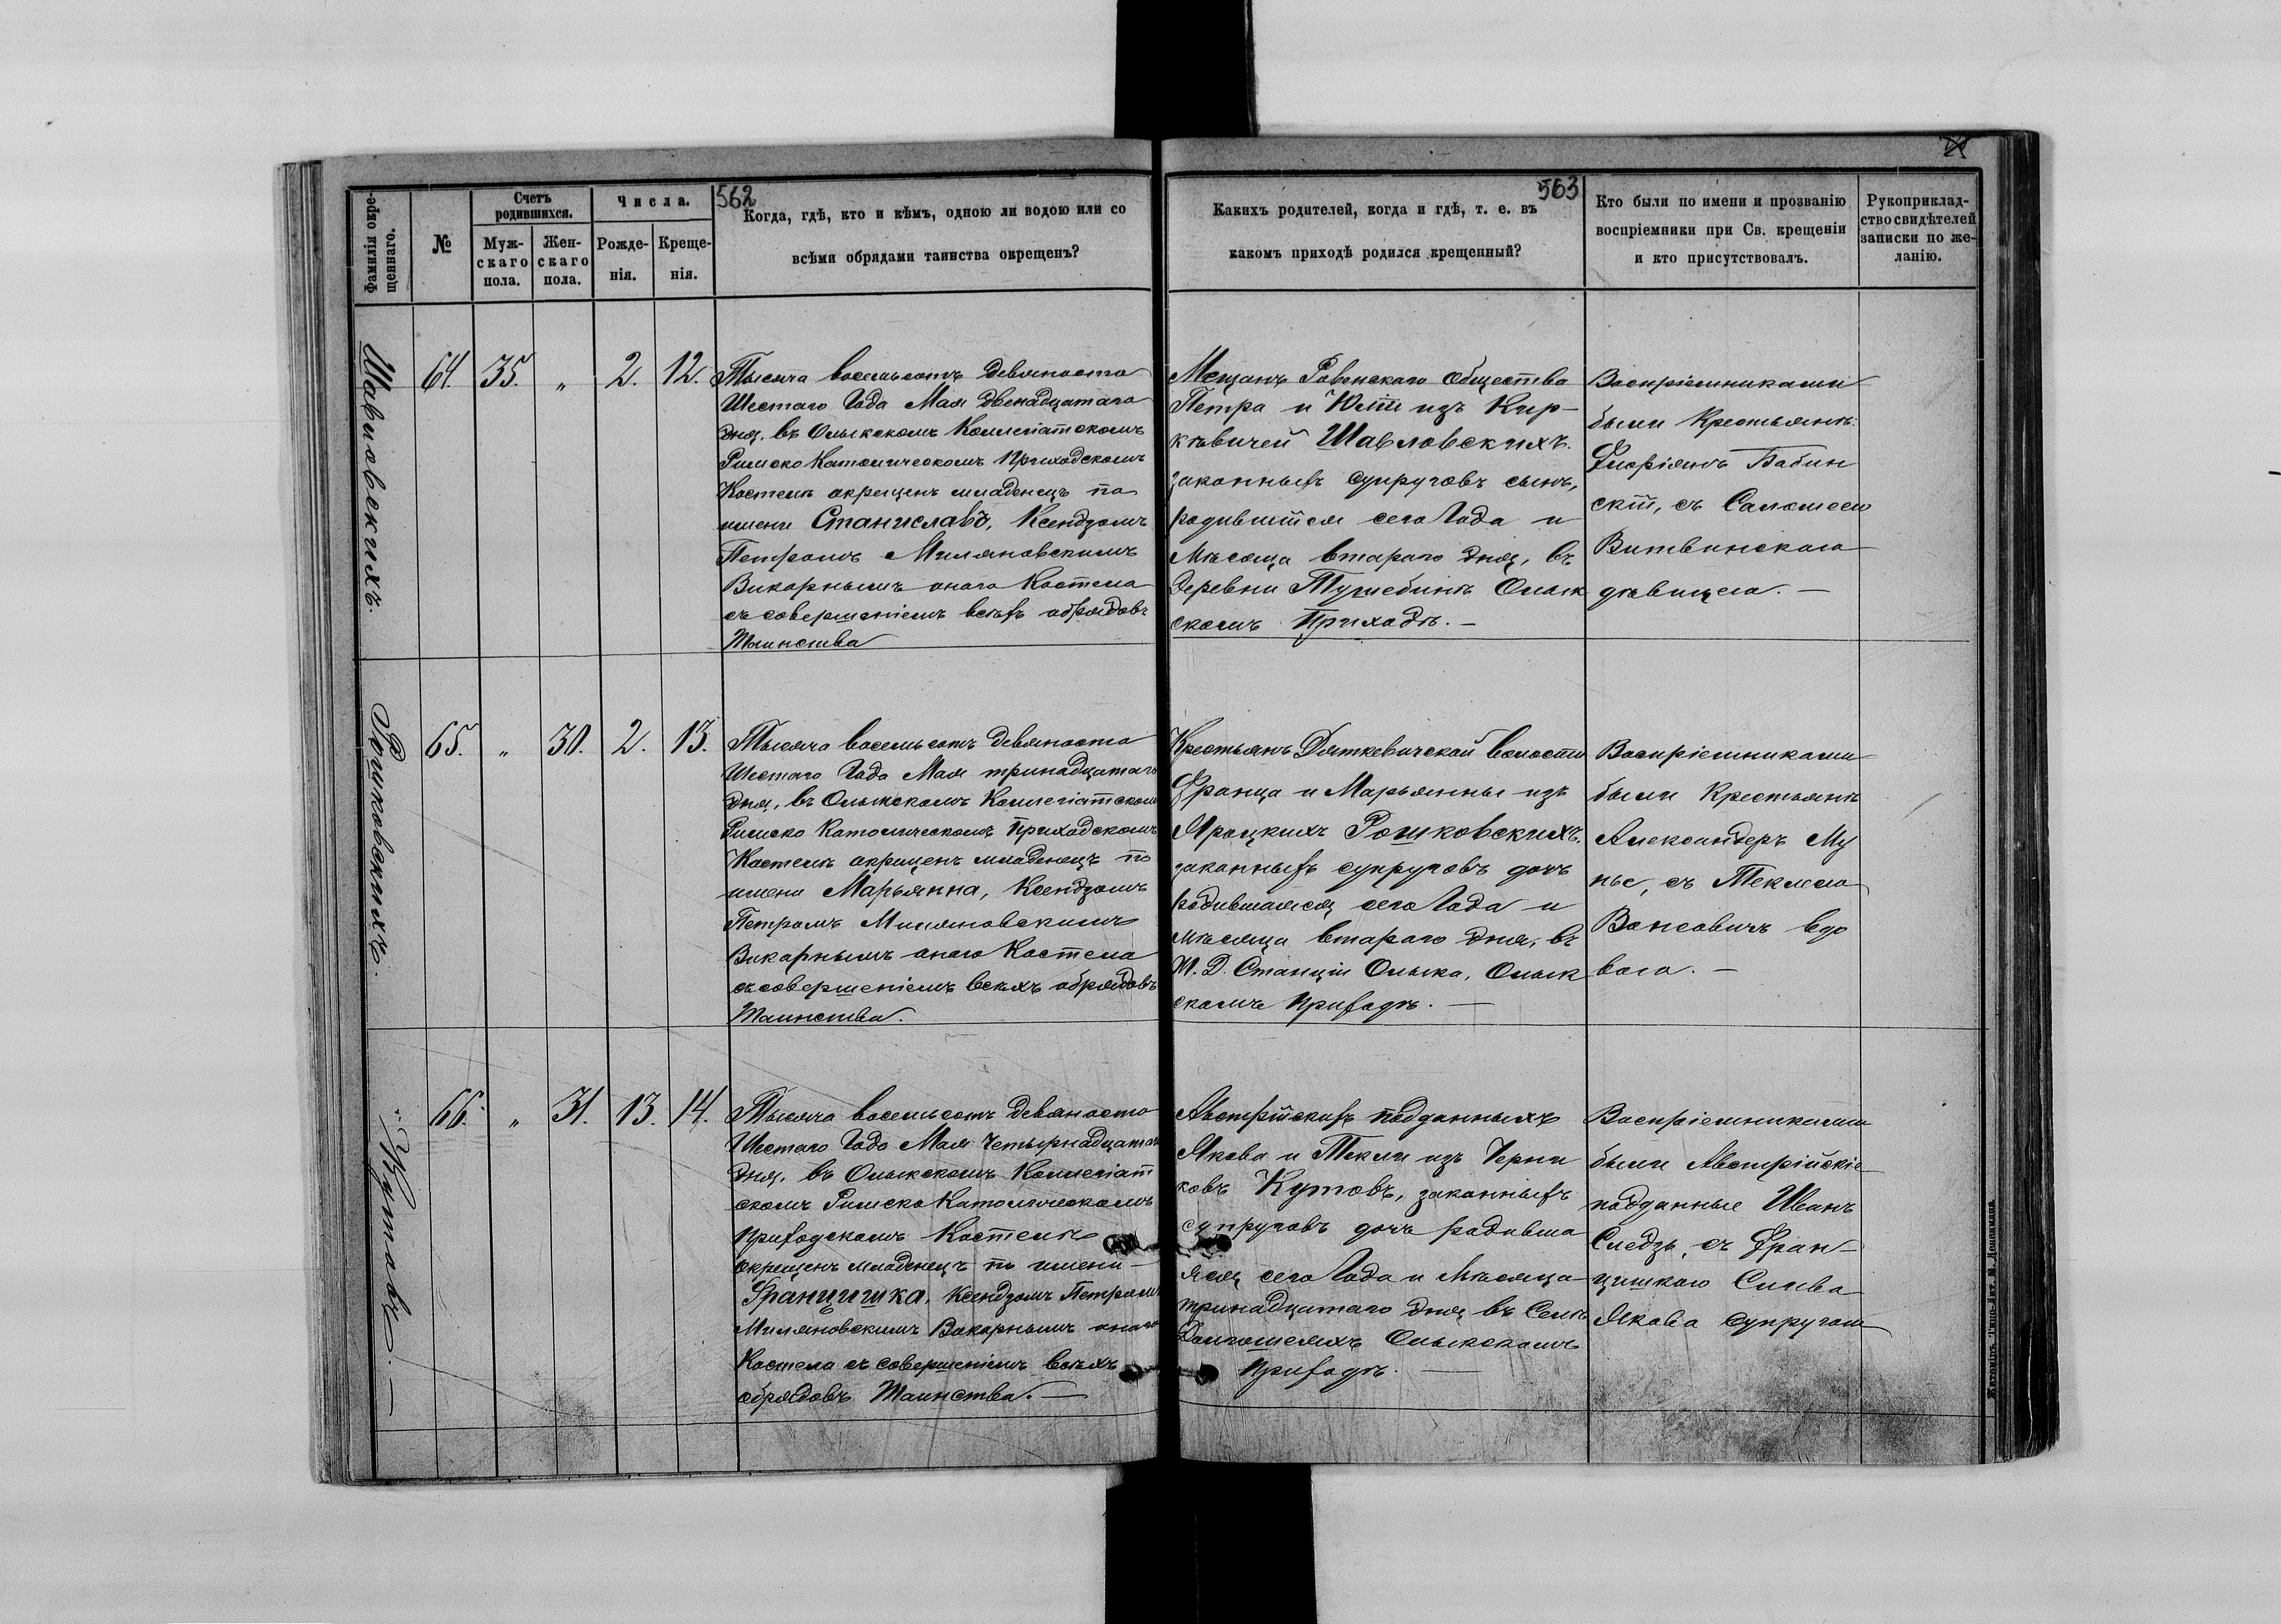 562
563
Фамилія окре-
щеннаго.
№
Счетъ
родившихся.
Муж-
скаго
пола.
Жен-
скаго
пола.
Числа.
Рожде-
нія.
Креще-
нія.
Когда, гдѣ, кто и кѣмъ, одною ли водою или со
всѣми обрядами таинства окрещенъ?
Какихъ родителей, когда и гдѣ, т. е. въ
какомъ приходѣ родился крещенный?
Кто были по имени и прозванію
воспріемники при Св. крещеніи
и кто присутствовалъ.
Рукоприклад-
ство свидѣтелей
записки по же-
ланію.
Шавловскихъ.
64. 35. „ 2. 12.
Тысяча восемьсотъ девяносто
Шестаго Года Мая двенадцатаго
дня, въ Олыкскомъ Коллегіатскомъ
Римско Католическомъ Приходскомъ
Костелѣ окрещенъ младенецъ по
имени Станиславъ, Ксендзомъ
Петромъ Миляновскимъ
Викарнымъ онаго Костела
съ совершеніемъ всѣхъ обрядовъ
Таинства
Мещанъ Ровенскаго Общества
Петра и Юліи изъ Кир-
кѣвичей Шавловскихъ.
законныхъ супруговъ сынъ,
родившійся сего Года и
Мѣсяца втораго дня, въ
Деревни Олык
скомъ Приходѣ. —
Воспріемниками
были Крестьянъ:
Флоріянъ Бабин
скій, съ Саломеею
Витвинскою
дѣвицею. —
Рошковскихъ.
65. „ 30. 2. 13.
Тысяча восемьсотъ девяносто
Шестаго Года Мая тринадцатаго
дня, въ Олыкскомъ Коллегіатскомъ
Римско Католическомъ Приходскомъ
Костелѣ окрещенъ младенецъ по
имени Марьянна, Ксендзомъ
Петромъ Миляновскимъ
Викарнымъ онаго Костела
съ совершеніемъ всѣхъ обрядовъ
Таинства.
Крестьянъ Дяткевичской волости
Франца и Марьянны изъ
Яроцкихъ Рошковскихъ.
законныхъ супруговъ дочь
родившаяся сего Года и
мѣсяца втораго дня, въ
Ж. Д. Станціи Олыка, Олык
скомъ приходѣ. —
Воспріемниками
были Крестьянѣ
Александеръ Му
нье, съ Теклею
Вонсовичъ вдо
вою. —
Кутовъ. —
66. „ 31. 13. 14.
Тысяча восемьсотъ девяносто
Шестаго Года Мая Четырнадцатаго
дня, въ Олыкскомъ Коллегіат
скомъ Римско Католическомъ
приходскомъ Костелѣ
окрещенъ младенецъ по имени
Францишка, Ксендзомъ Петромъ
Миляновскимъ Викарнымъ онаго
Костела съ совершеніемъ всѣхъ
обрядовъ Таинства. —
Австрійскихъ подданныхъ
Якова и Текли изъ Черни
ковъ Кутовъ, законныхъ
супруговъ дочь родивша
яся сего Года и Мѣсяца
тринадцатаго дня въ Селѣ
Долгошеяхъ Олыкскомъ
приходѣ. —
Воспріемниками
были Австрійскіе
подданные Иванъ
Следзь, съ Фран-
цишкою Слива
Якова супругою
Житоміръ. Типо-Лит. М. Дененмана.